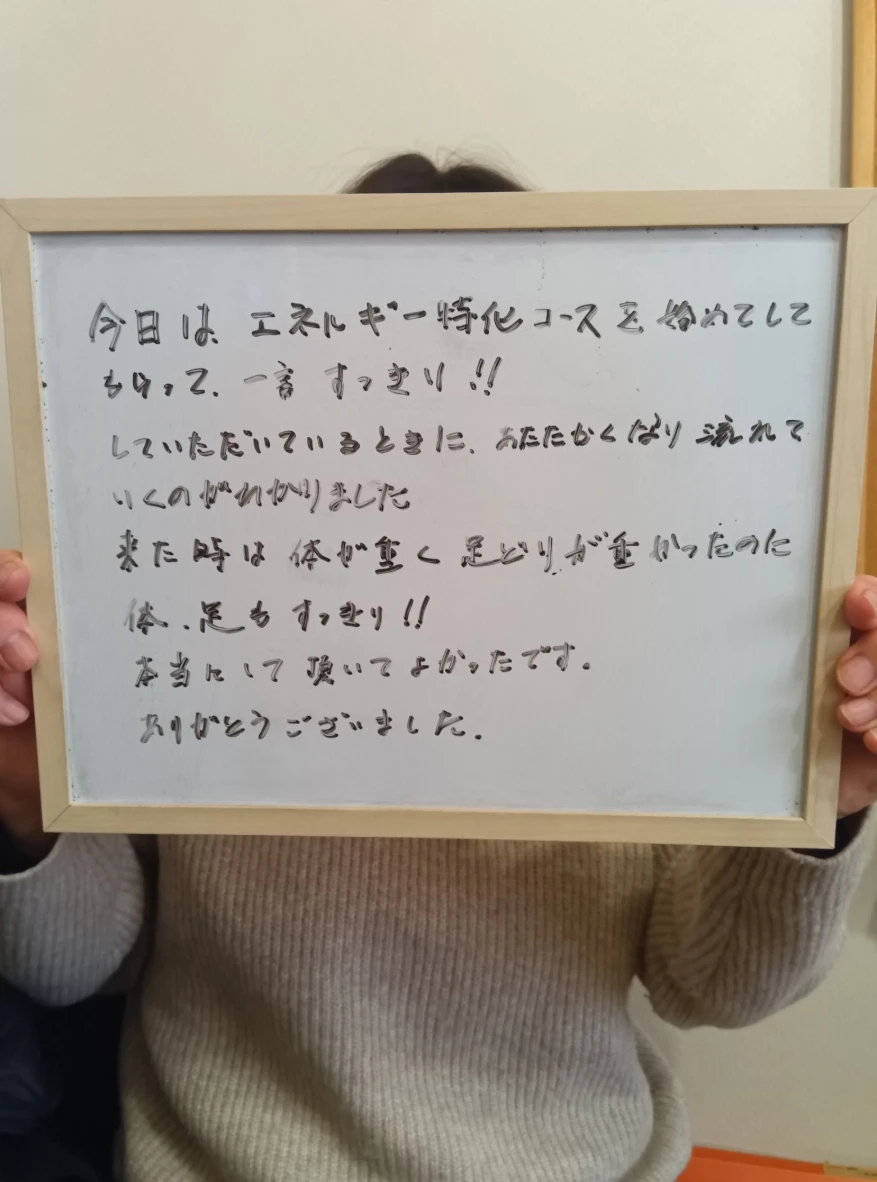 今日は、エネルギー特化コースを、始めてして
もらって、一言 すっきり!!
していただいているときに、あたたかくなり 流れて
いくのがわかりました
来た時は 体が重く 足どりが重かったのに
体、足も すっきり!!
本当にして頂いてよかったです。
ありがとうございました。